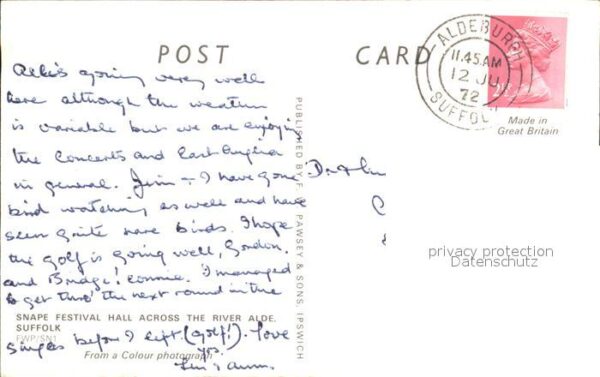 POST CARD
All is going very well
here although the weather
is variable but we are enjoying
the Concerts and East Anglia
in general. Jim + I have gone
bird watching as well and have
seen quite rare birds. I hope
the golf is going well, Gordon.
and Bridge! Connie. I managed
to get thro' the next round in the
singles before I left. (golf!). Love
yrs.
SNAPE FESTIVAL HALL ACROSS THE RIVER ALDE.
SUFFOLK
FWP/SN1
From a Colour photograph
PUBLISHED BY F. W. PAWSEY & SONS, IPSWICH
Dr &
ALDEBURGH
11.45 AM
12 JU
72
SUFFOLK
2½
Made in
Great Britain
privacy protection
Datenschutz